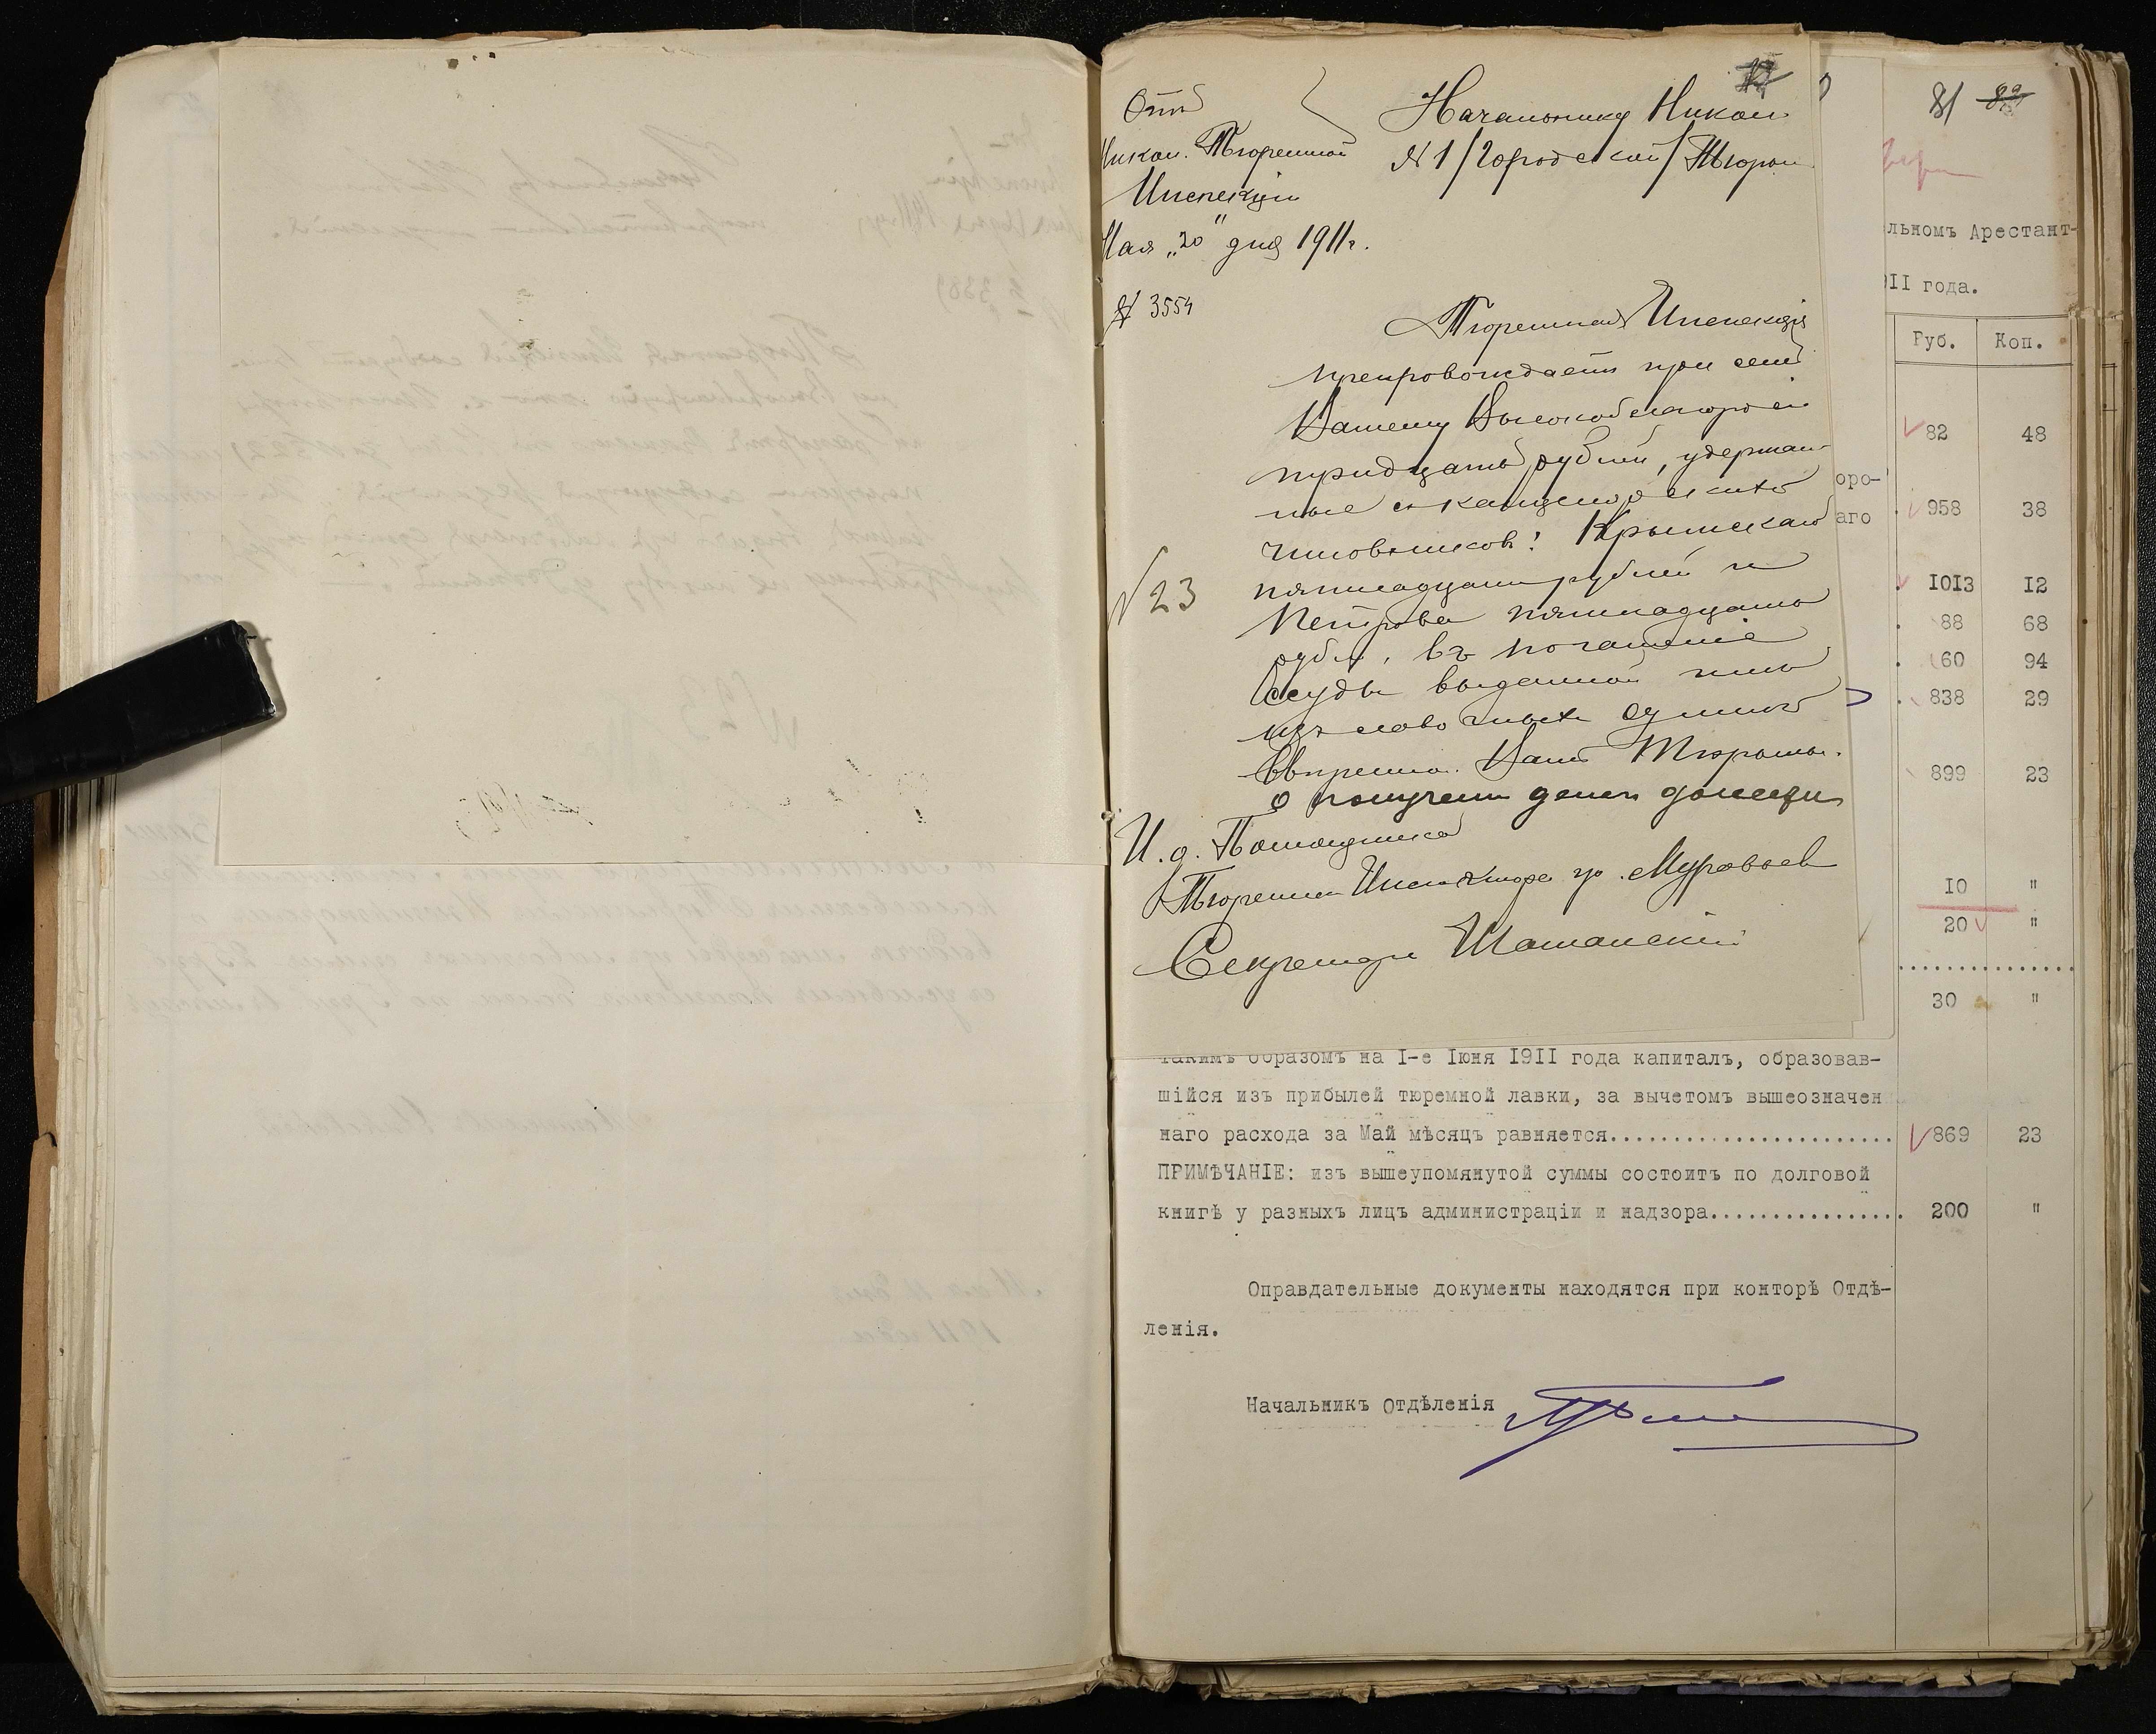 Отъ
Никол. Тюремной
Инспекціи
Мая „20" дня 1911 г.
№ 3554
Начальнику Никол.
№ 1 /Городской/ Тюрьм
Тюремная Инспекція
препровождаетъ при семъ
Вашему Высокоблагородію
тридцать рублей, удержан-
ные съ канцелярскихъ
чиновниковъ: Крымскаго
пятнадцать рублей и
Петрова пятнадцать
рубл., въ погашеніе
ссуды выданной имъ
изъ лавочныхъ суммъ
ввѣренной Вамъ Тюрьмы.
О полученіи денегъ донести
№ 23
И. д. Помощника
Тюремнаго Инспектора гр. Муравьев
Секретарь
81 82
льномъ Арестант-
911 года.
Руб. Коп.
82 48
оро-
958 38
аго
1013 12
88 68
60 94
838 29
899 23
10 "
20 "
30 "
такимъ образомъ на I-е Іюня 1911 года капиталъ, образовав-
шійся изъ прибылей тюремной лавки, за вычетомъ вышеозначен
наго расхода за Май мѣсяцъ равняется....................... 869 23
ПРИМѢЧАНІЕ: изъ вышеупомянутой суммы состоитъ по долговой
книгѣ у разныхъ лицъ администраціи и надзора................ 200 "
Оправдательные документы находятся при конторѣ Отдѣ-
ленія.
Начальникъ Отдѣленія